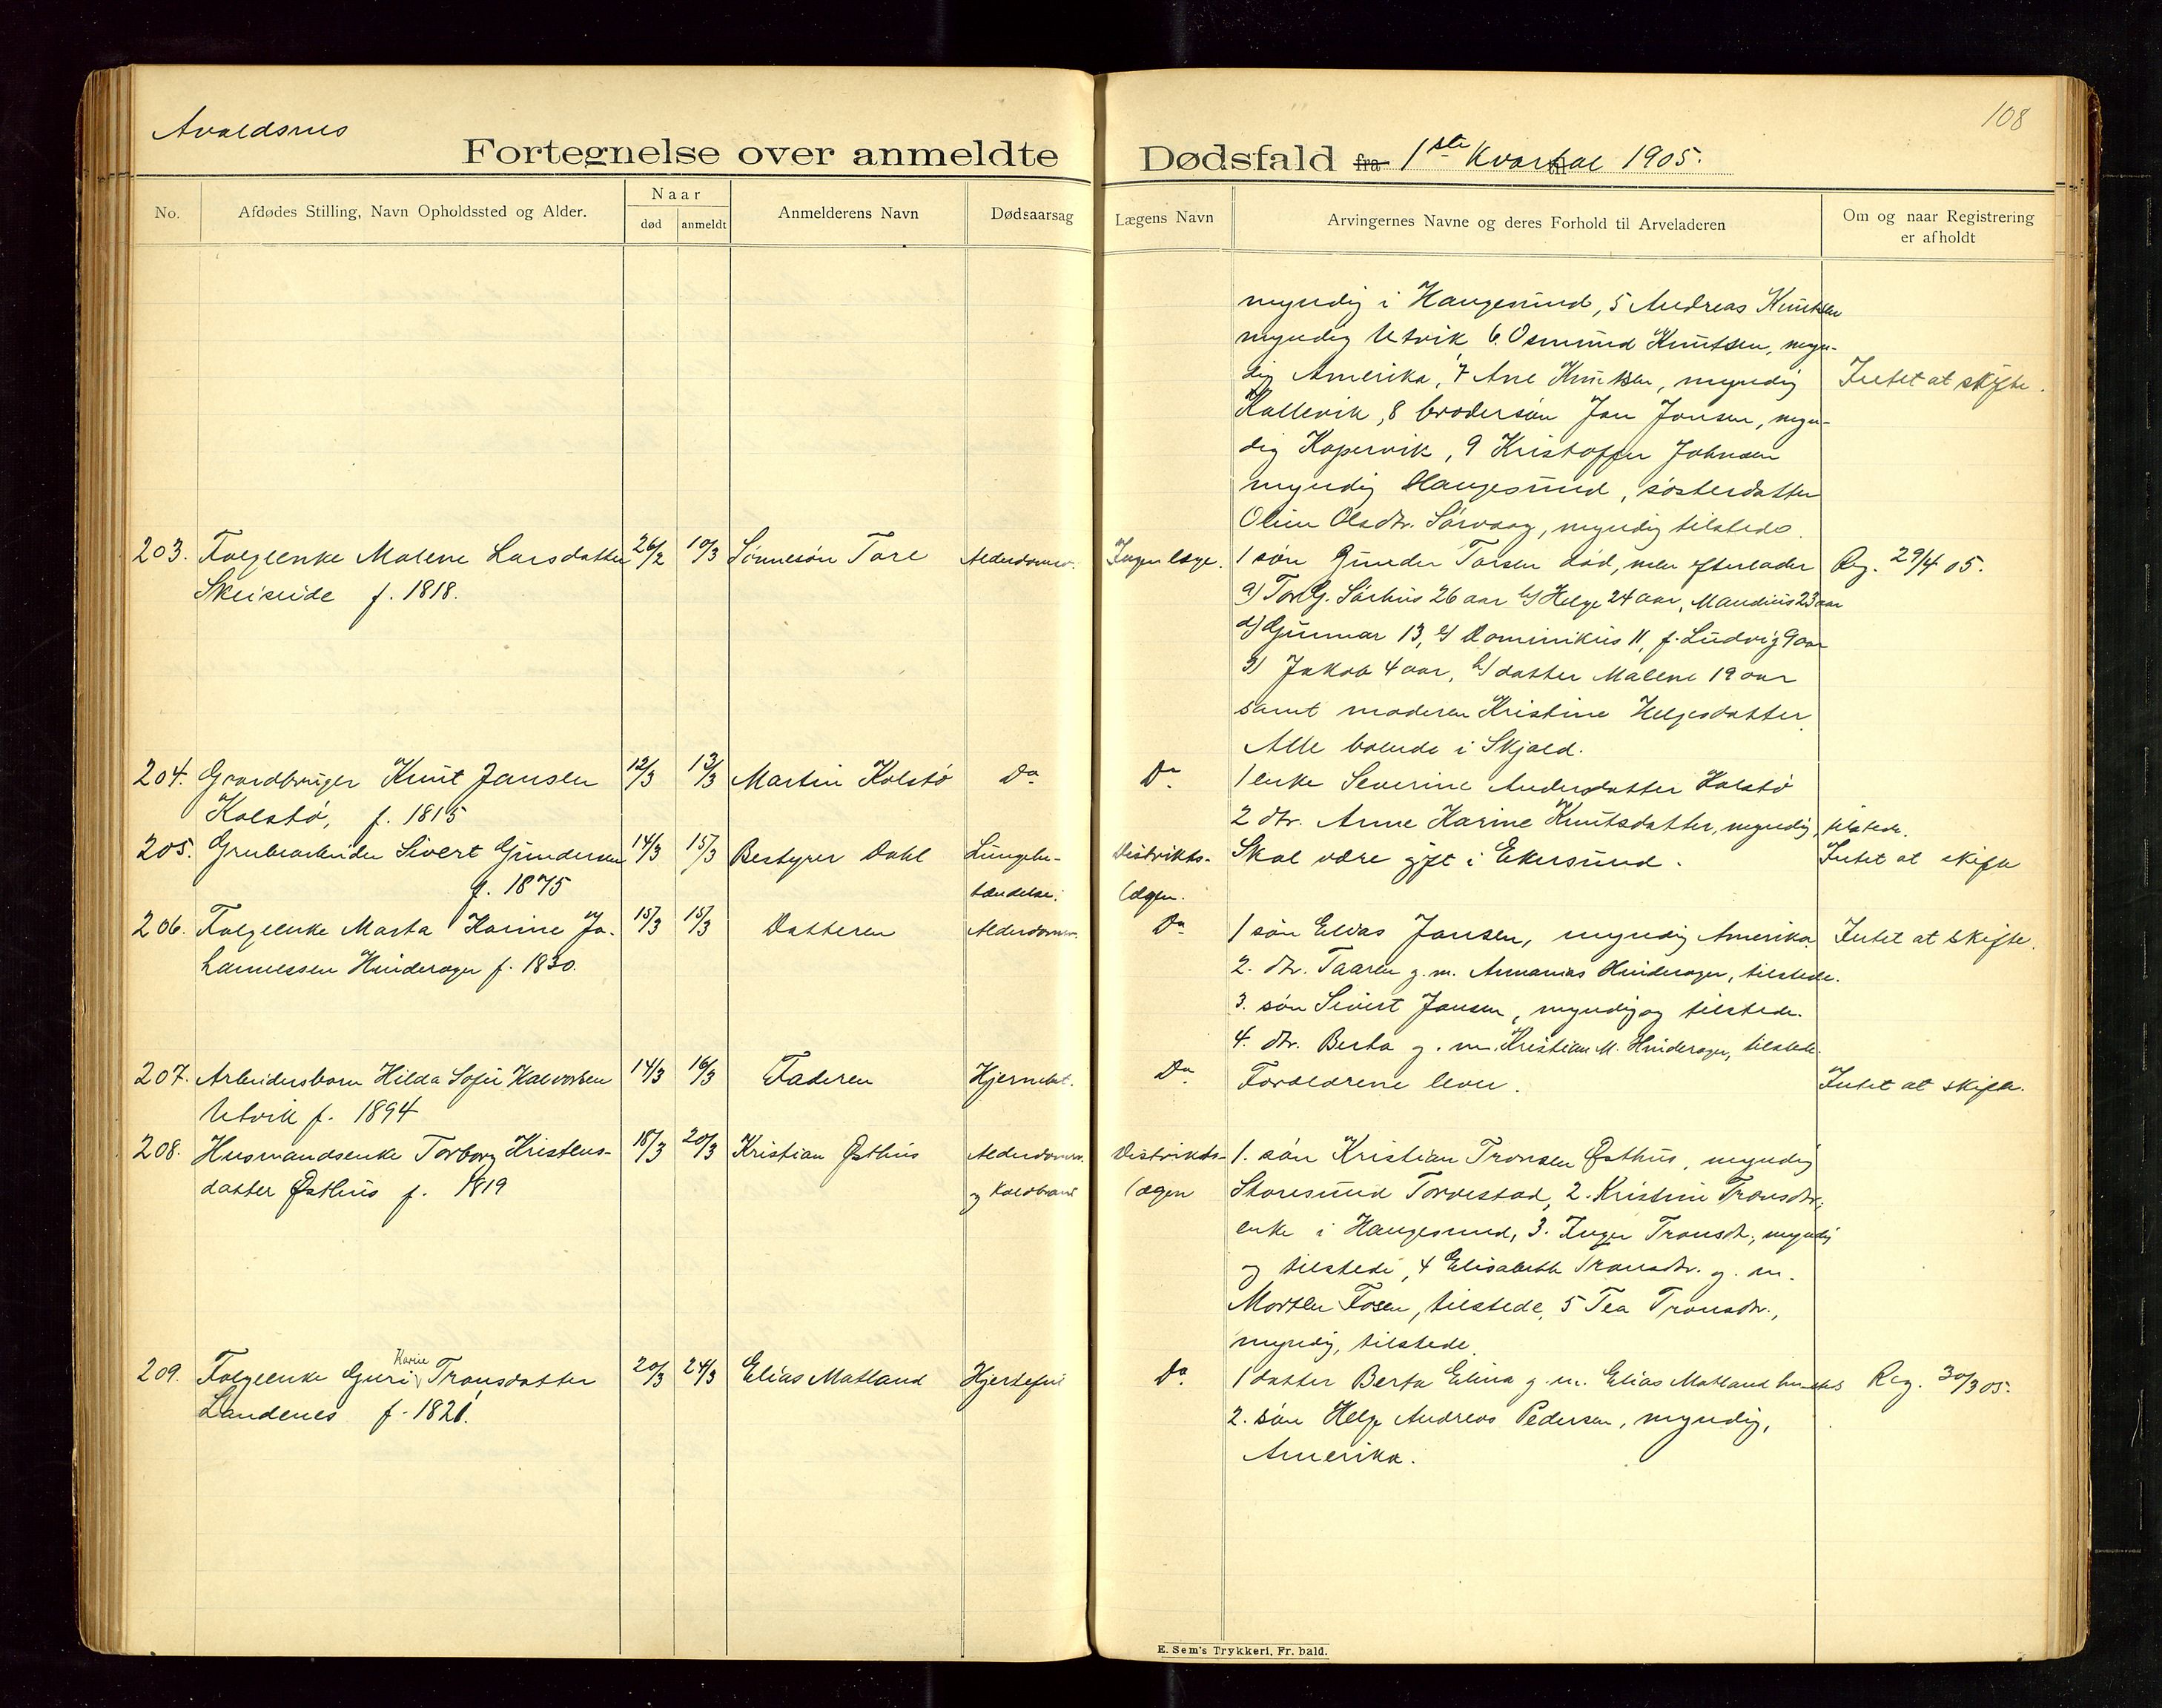 Avaldsnes
108
Fortegnelse over anmeldte Dødsfald fra 1ste Kvartal 1905.
No.
Afdødes Stilling, Navn Opholdssted og Alder.
Naar
død
anmeldt
Anmelderens Navn
Dødsaarsag
Lægens Navn
Arvingernes Navne og deres Forhold til Arveladeren
Om og naar Registrering
er afholdt
myndig i Haugesund, 5 Andreas Knutsen
myndig Utvik, 6. Osmund Knutsen, myn-
dig Amerika, 7 Ane Knutsen, myndig
Intet at skifte.
Kallevik, 8 brodersøn Jan Jansen, myn-
dig Kopervik, 9 Kristoffer Johnsen
myndig Haugesund, søsterdatter
Oline Olsdtr. Sørvaag, myndig tilstede.
203. Folgeenke Malene Larsdatter 26/2 10/3 Sønnesøn Tore Alderdomsv. Ingen læge. 1 søn Gunder Torsen død, men efterlader Reg. 29/4 05.
Skeiseide f. 1818.
a) Tor G. Sørhus 26 aar b) Helge 24 aar, Mandius 23 aar
d) Gunnar 13, e) Dominikus 11, f. Ludvig 9 aar
g) Jakob 4 aar, h) datter Malene 19 aar
samt moderen Kristine Helgesdatter.
Alle boende i Skjold.
204. Gaardbruger Knut Jansen 12/3 13/3 Martin Kolstø Do. Do. 1 enke Severine Andersdatter Kolstø
Kolstø, f. 1815
2 dtr. Anne Karine Knutsdatter, myndig, tilstede.
205. Grubearbeider Sivert Gundersen 14/3 15/3 Bestyrer Dahl Lungebe- Distrikts- Skal være gift i Ekersund. Intet at skifte
f. 1875
tændelse. lægen.
206. Folgeenke Marta Karine Jo- 15/3 15/3 Datteren Alderdomsv. Do 1 søn Elias Jansen, myndig Amerika Intet at skifte.
hannessen Hinderager f. 1830.
2. dtr. Taaren g. m. Annanias Hinderager, tilstede.
3. søn Sivert Jansen, myndig og tilstede.
4. dtr. Berta g. m. Kristian M. Hinderager, tilstede.
207. Arbeidersbarn Hilda Sofie Halvorsen 14/3 16/3 Faderen Hjernebet. Do Forældrene lever. Intet at skifte.
Utvik f. 1894
208. Husmandsenke Torborg Kristens- 18/3 20/3 Kristian Østhus Alderdomsv. Distrikts- 1. søn Kristian Tronsen Østhus, myndig
datter Østhus f. 1819
og Koldbrand lægen Storesund Torvestad, 2. Kristine Tronsdtr.,
enke i Haugesund, 3. Inger Tronsdt., myndig
og tilstede, 4 Elisabeth Tronsdtr. g. m.
Morten Fosen, tilstede, 5 Tea Tronsdtr.,
myndig, tilstede.
209. Folgeenke Guri Karine Tronsdatter 20/3 24/3 Elias Matland Hjertefeil Do. 1 datter Berta Elina g. m. Elias Matland Reg. 30/3 05.
Landenes f. 1821.
2. søn Helge Andreas Pedersen, myndig,
Amerika.
E. Sem's Trykkeri, Fr. hald.